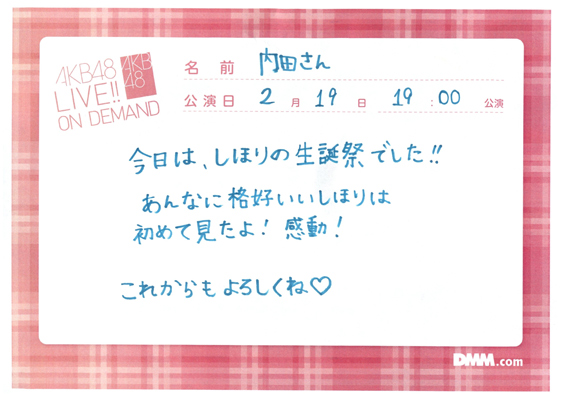 AKB48
LIVE!!
ON DEMAND
AKB
48
名 前 内田さん
公演日 2 月 19 日 19 : 00 公演
今日は、しほりの生誕祭でした!!
あんなに格好いいしほりは
初めて見たよ! 感動!
これからもよろしくね♡
DMM.com